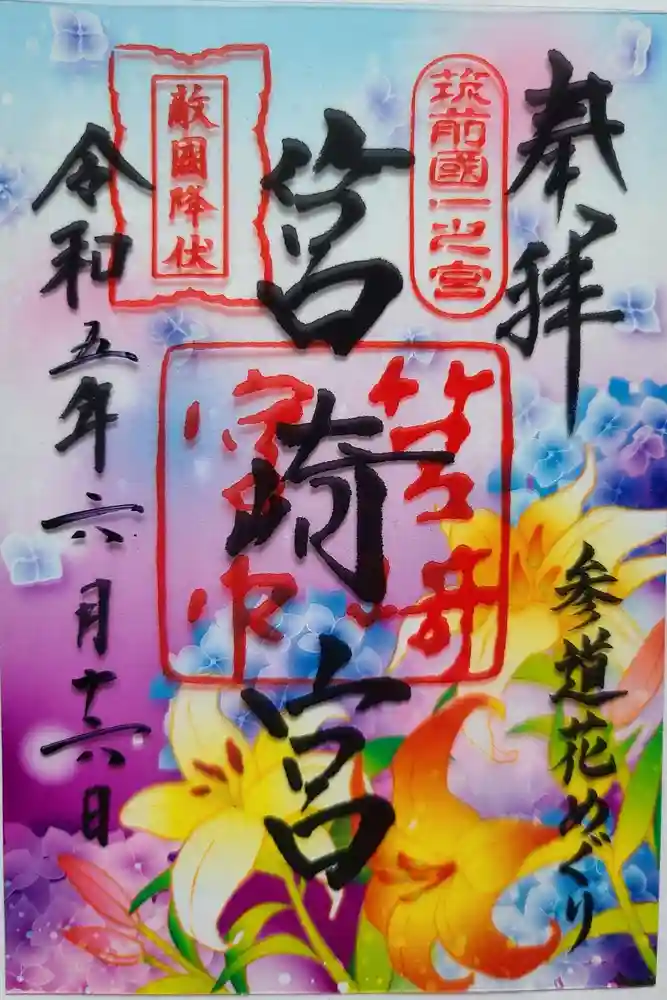 奉拝
筑前國一之宮
参道花めぐり
筥崎宮
敵國降伏
令和五年六月十六日